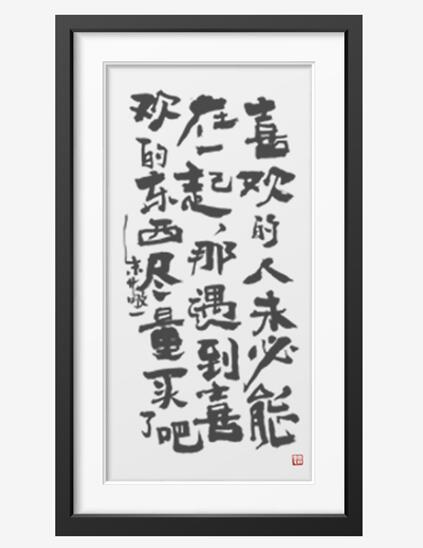 喜欢的人未必能
在一起，那遇到喜
欢的东西尽量买了吧